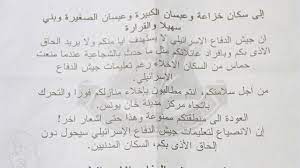 إلى سكان خزاعة وعبسان الكبيرة وعبسان الصغيرة وبني
سهيلا والقرارة
إن جيش الدفاع الإسرائيلي لا يستهدف أيا منكم ولا يريد الحاق
الأذى بكم وبأفراد عائلاتكم مثل ما حدث بالشجاعية عندما منعت
حماس من السكان الاخلاء رغم تعليمات جيش الدفاع
الإسرائيلي.
من أجل سلامتكم، أنتم مطالبون بإخلاء منازلكم فورا والتحرك
باتجاه مركز مدينة خان يونس.
العودة الى منطقتكم ممنوعة وهذا حتى إشعار آخر!
إن الانصياع لتعليمات جيش الدفاع الإسرائيلي سيحول دون
إلحاق الأذى بكم، السكان المدنيين.